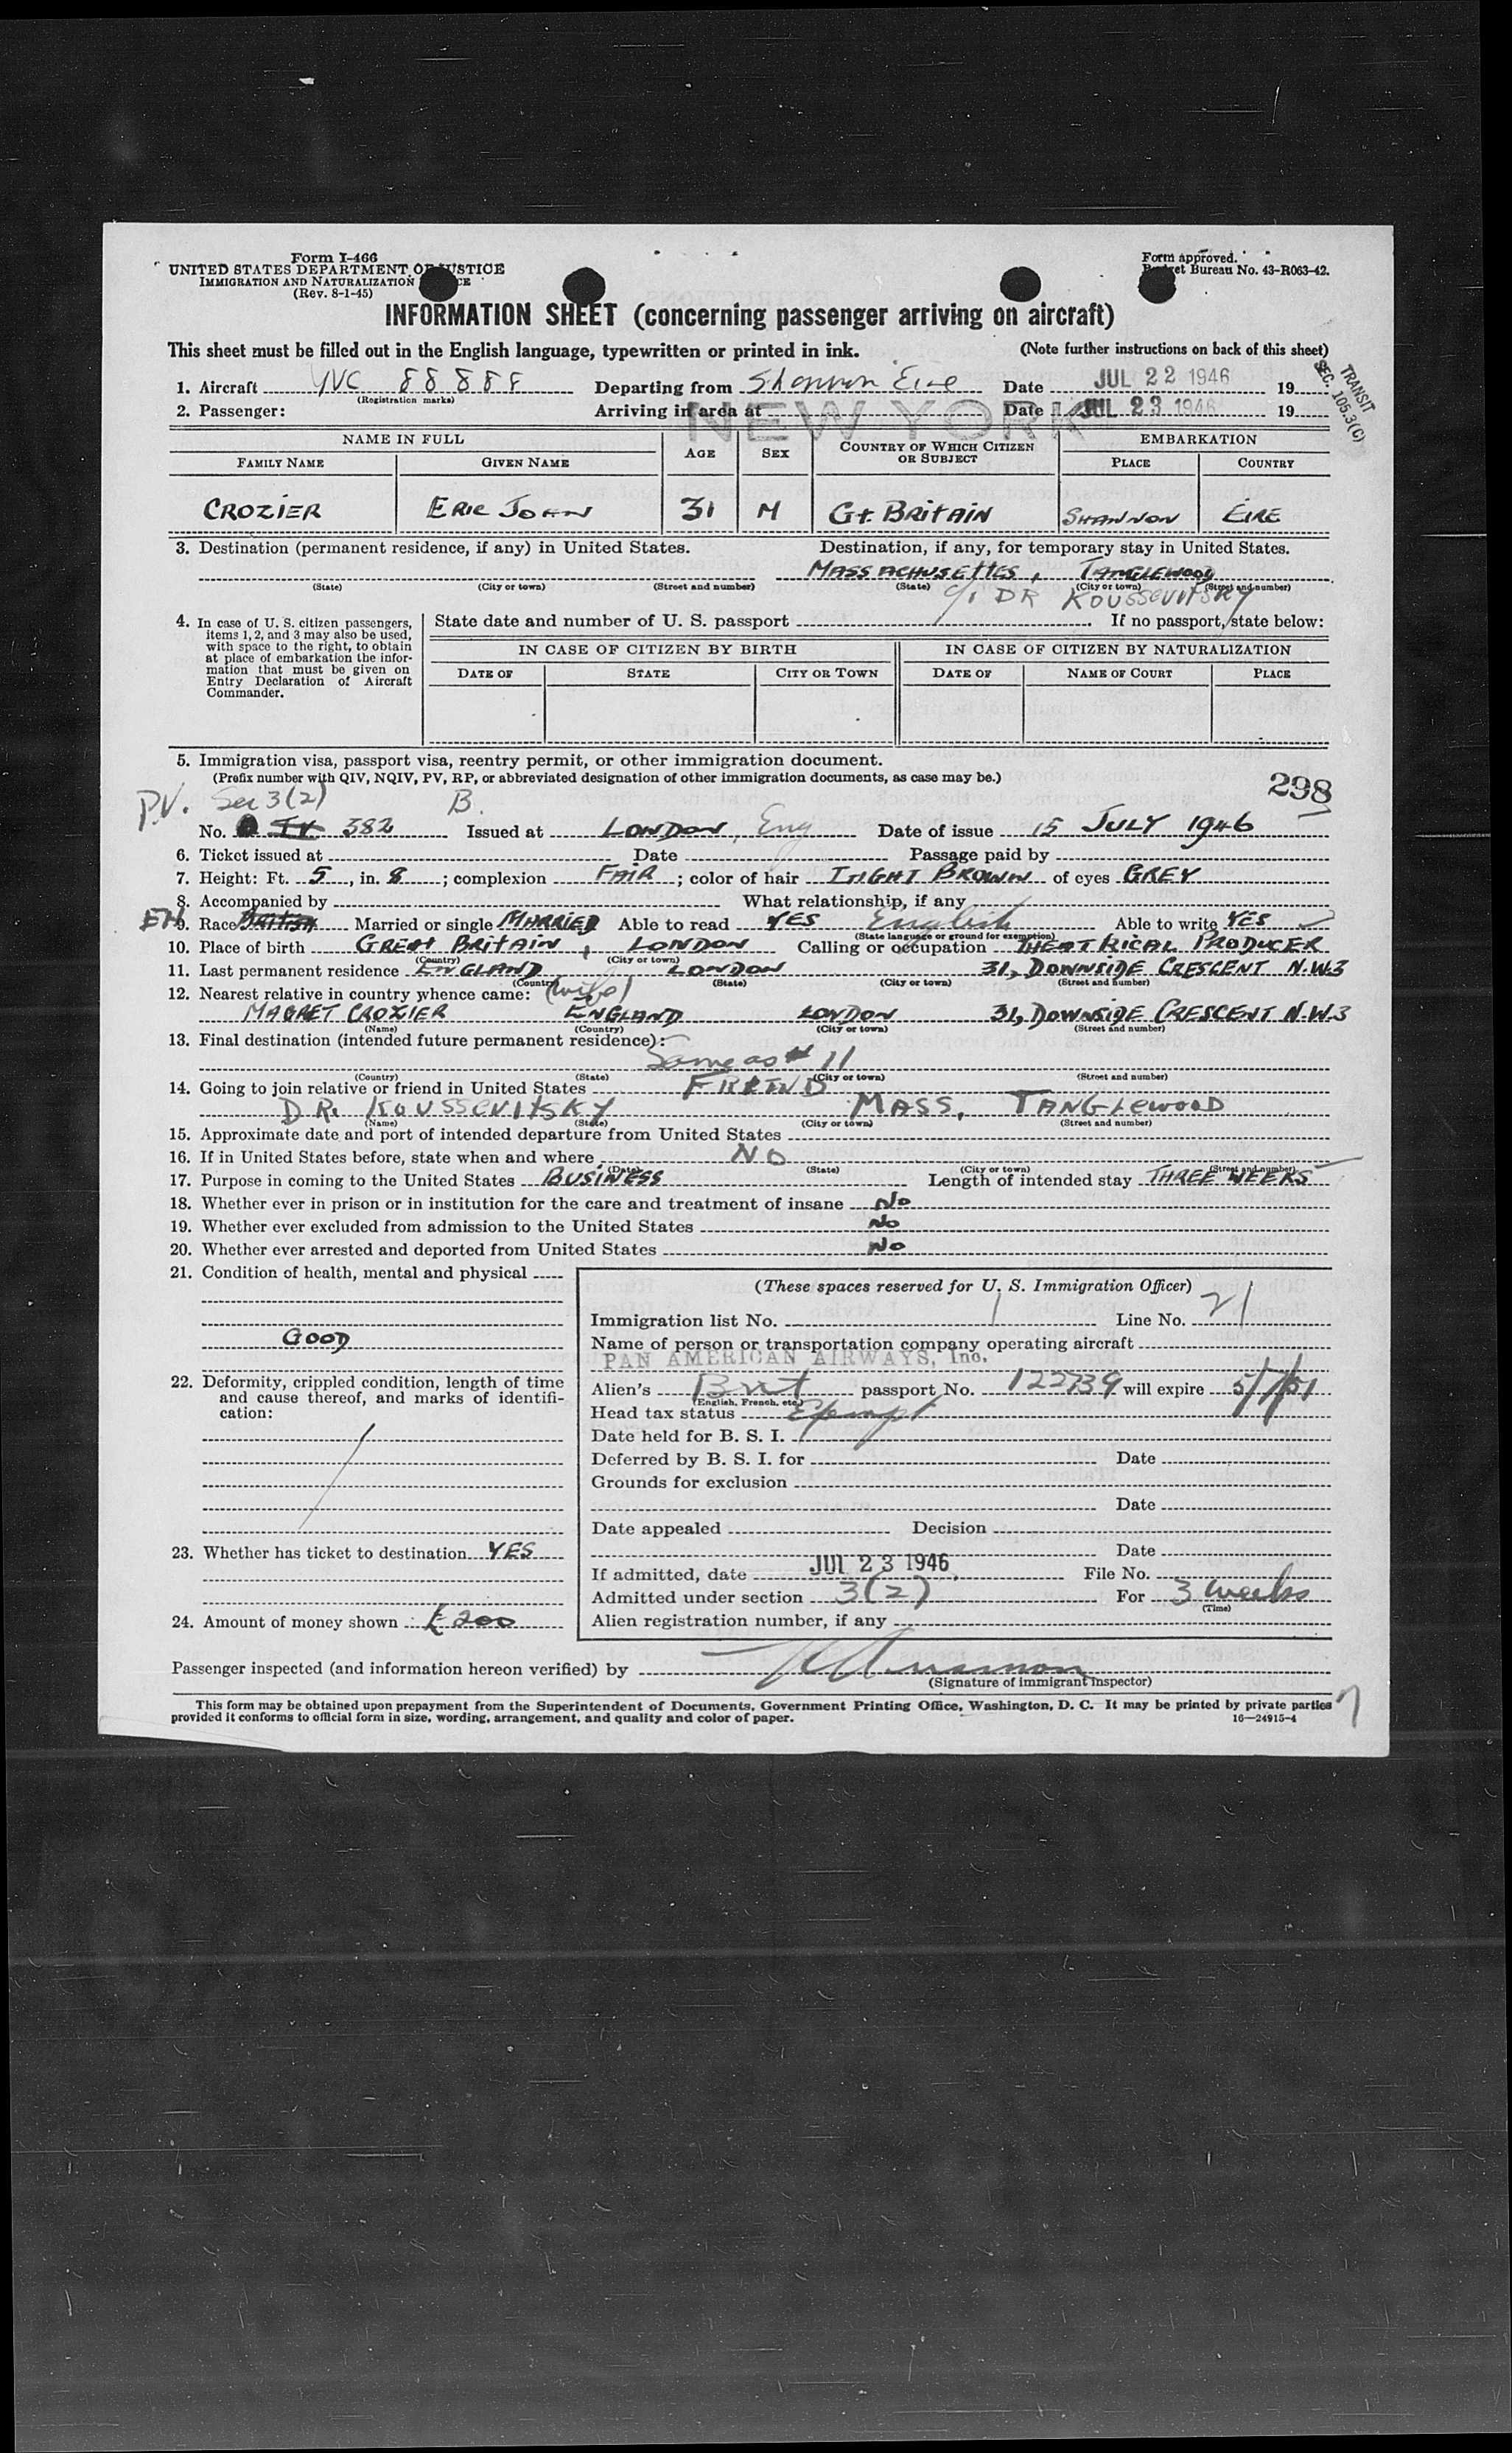 Form I-466
UNITED STATES DEPARTMENT OF JUSTICE
IMMIGRATION AND NATURALIZATION
(Rev. 8-1-45)
Form approved.
Bureau No. 43-R063-42.
INFORMATION SHEET (concerning passenger arriving on aircraft)
This sheet must be filled out in the English language, typewritten or printed in ink. (Note further instructions on back of this sheet)
TRANSIT
SEC. 105.3(C)
1. Aircraft YVC 88888 Departing from Shannon Eire Date JUL 22 1946 19
(Registration marks)
2. Passenger: Arriving in area at NEW YORK Date JUL 23 1946 19
NAME IN FULL AGE SEX COUNTRY OF WHICH CITIZEN OR SUBJECT EMBARKATION
FAMILY NAME GIVEN NAME PLACE COUNTRY
CROZIER ERIC JOHN 31 M Gt. BRITAIN SHANNON EIRE
3. Destination (permanent residence, if any) in United States. Destination, if any, for temporary stay in United States.
MASSACHUSETTES, TANGLEWOOD
(State) (City or town) (Street and number) (State) (City or town) (Street and number)
DR KOUSSEVITSKY
4. In case of U. S. citizen passengers, items 1, 2, and 3 may also be used, with space to the right, to obtain at place of embarkation the information that must be given on Entry Declaration of Aircraft Commander.
State date and number of U. S. passport If no passport, state below:
IN CASE OF CITIZEN BY BIRTH IN CASE OF CITIZEN BY NATURALIZATION
DATE OF STATE CITY OR TOWN DATE OF NAME OF COURT PLACE
5. Immigration visa, passport visa, reentry permit, or other immigration document.
(Prefix number with QIV, NQIV, PV, RP, or abbreviated designation of other immigration documents, as case may be.)
298
P.V. Sec 3(2) B.
No. 382 Issued at LONDON, Eng Date of issue 15 JULY 1946
6. Ticket issued at Date Passage paid by
7. Height: Ft. 5, in. 8; complexion FAIR; color of hair LIGHT BROWN of eyes GREY
8. Accompanied by What relationship, if any
9. Race British Married or single MARRIED Able to read YES English Able to write YES
(State language or ground for exemption)
10. Place of birth GREAT BRITAIN, LONDON Calling or occupation THEATRICAL PRODUCER
(Country) (City or town)
11. Last permanent residence ENGLAND LONDON 31, DOWNSIDE CRESCENT N.W.3
(Country) (State) (City or town) (Street and number)
12. Nearest relative in country whence came: (wife)
MAGRET CROZIER ENGLAND LONDON 31, DOWNSIDE CRESCENT N.W.3
(Name) (Country) (City or town) (Street and number)
13. Final destination (intended future permanent residence):
Same as # 11
(Country) (State) (City or town) (Street and number)
14. Going to join relative or friend in United States FRIEND
DR. KOUSSEVITSKY MASS, TANGLEWOOD
(Name) (State) (City or town) (Street and number)
15. Approximate date and port of intended departure from United States
16. If in United States before, state when and where NO
(Date) (State) (City or town) (Street and number)
17. Purpose in coming to the United States BUSINESS Length of intended stay THREE WEEKS
18. Whether ever in prison or in institution for the care and treatment of insane No
19. Whether ever excluded from admission to the United States No
20. Whether ever arrested and deported from United States No
21. Condition of health, mental and physical
GOOD
22. Deformity, crippled condition, length of time and cause thereof, and marks of identification:
23. Whether has ticket to destination YES
24. Amount of money shown £200
(These spaces reserved for U. S. Immigration Officer)
Immigration list No. 1 Line No. 21
Name of person or transportation company operating aircraft
PAN AMERICAN AIRWAYS, Inc.
Alien's Brit passport No. 122739 will expire 5/7/51
(English, French, etc.)
Head tax status Exempt
Date held for B. S. I.
Deferred by B. S. I. for Date
Grounds for exclusion
Date
Date appealed Decision
Date
If admitted, date JUL 23 1946 File No.
Admitted under section 3(2) For 3 weeks
(Time)
Alien registration number, if any
Passenger inspected (and information hereon verified) by
(Signature of immigrant inspector)
This form may be obtained upon prepayment from the Superintendent of Documents, Government Printing Office, Washington, D. C. It may be printed by private parties
provided it conforms to official form in size, wording, arrangement, and quality and color of paper. 16—24915-4